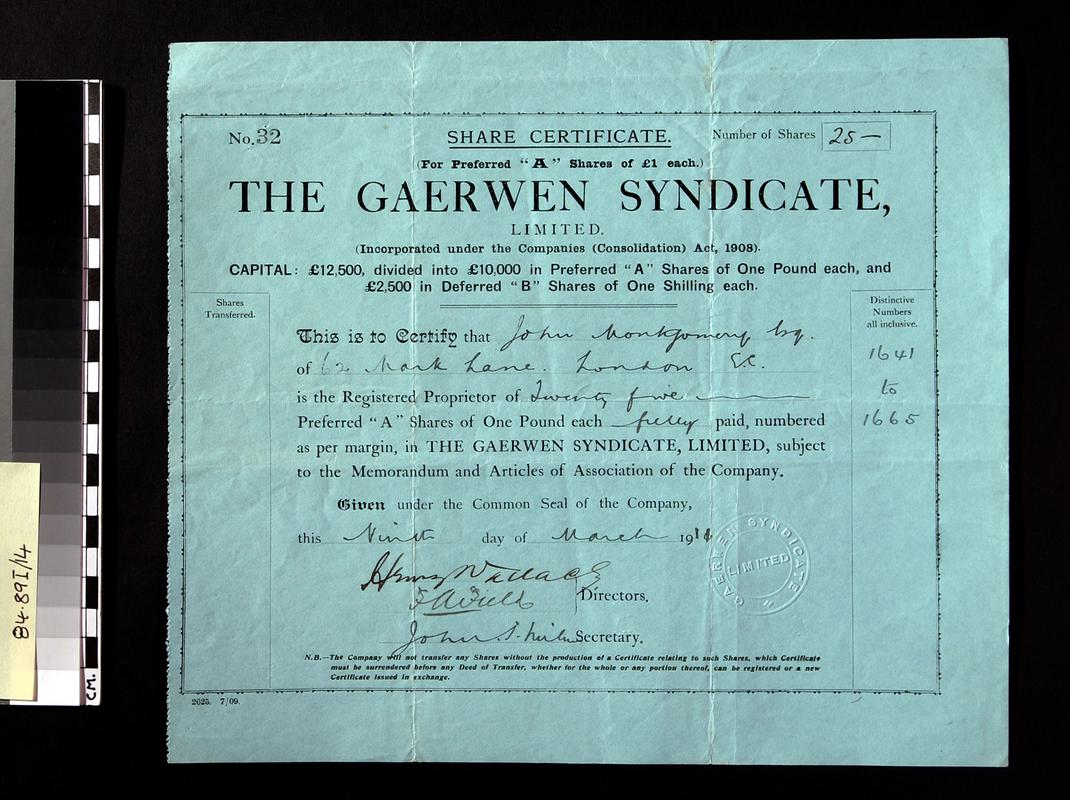 No. 32
SHARE CERTIFICATE.
Number of Shares 25 —
(For Preferred "A" Shares of £1 each.)
THE GAERWEN SYNDICATE,
LIMITED.
(Incorporated under the Companies (Consolidation) Act, 1908).
CAPITAL: £12,500, divided into £10,000 in Preferred "A" Shares of One Pound each, and
£2,500 in Deferred "B" Shares of One Shilling each.
Shares
Transferred.
Distinctive
Numbers
all inclusive.
1641
to
1665
This is to Certify that John Montgomery Esq.
of 62 Mark Lane. London E.C.
is the Registered Proprietor of Twenty five
Preferred "A" Shares of One Pound each fully paid, numbered
as per margin, in THE GAERWEN SYNDICATE, LIMITED, subject
to the Memorandum and Articles of Association of the Company.
Given under the Common Seal of the Company,
this Ninth day of March 1911
Henry Wallace
Directors.
John S. Secretary.
GAERWEN SYNDICATE
LIMITED
N.B.—The Company will not transfer any Shares without the production of a Certificate relating to such Shares, which Certificate
must be surrendered before any Deed of Transfer, whether for the whole or any portion thereof, can be registered or a new
Certificate issued in exchange.
2625. 7/09.
84.89I/14
CM.